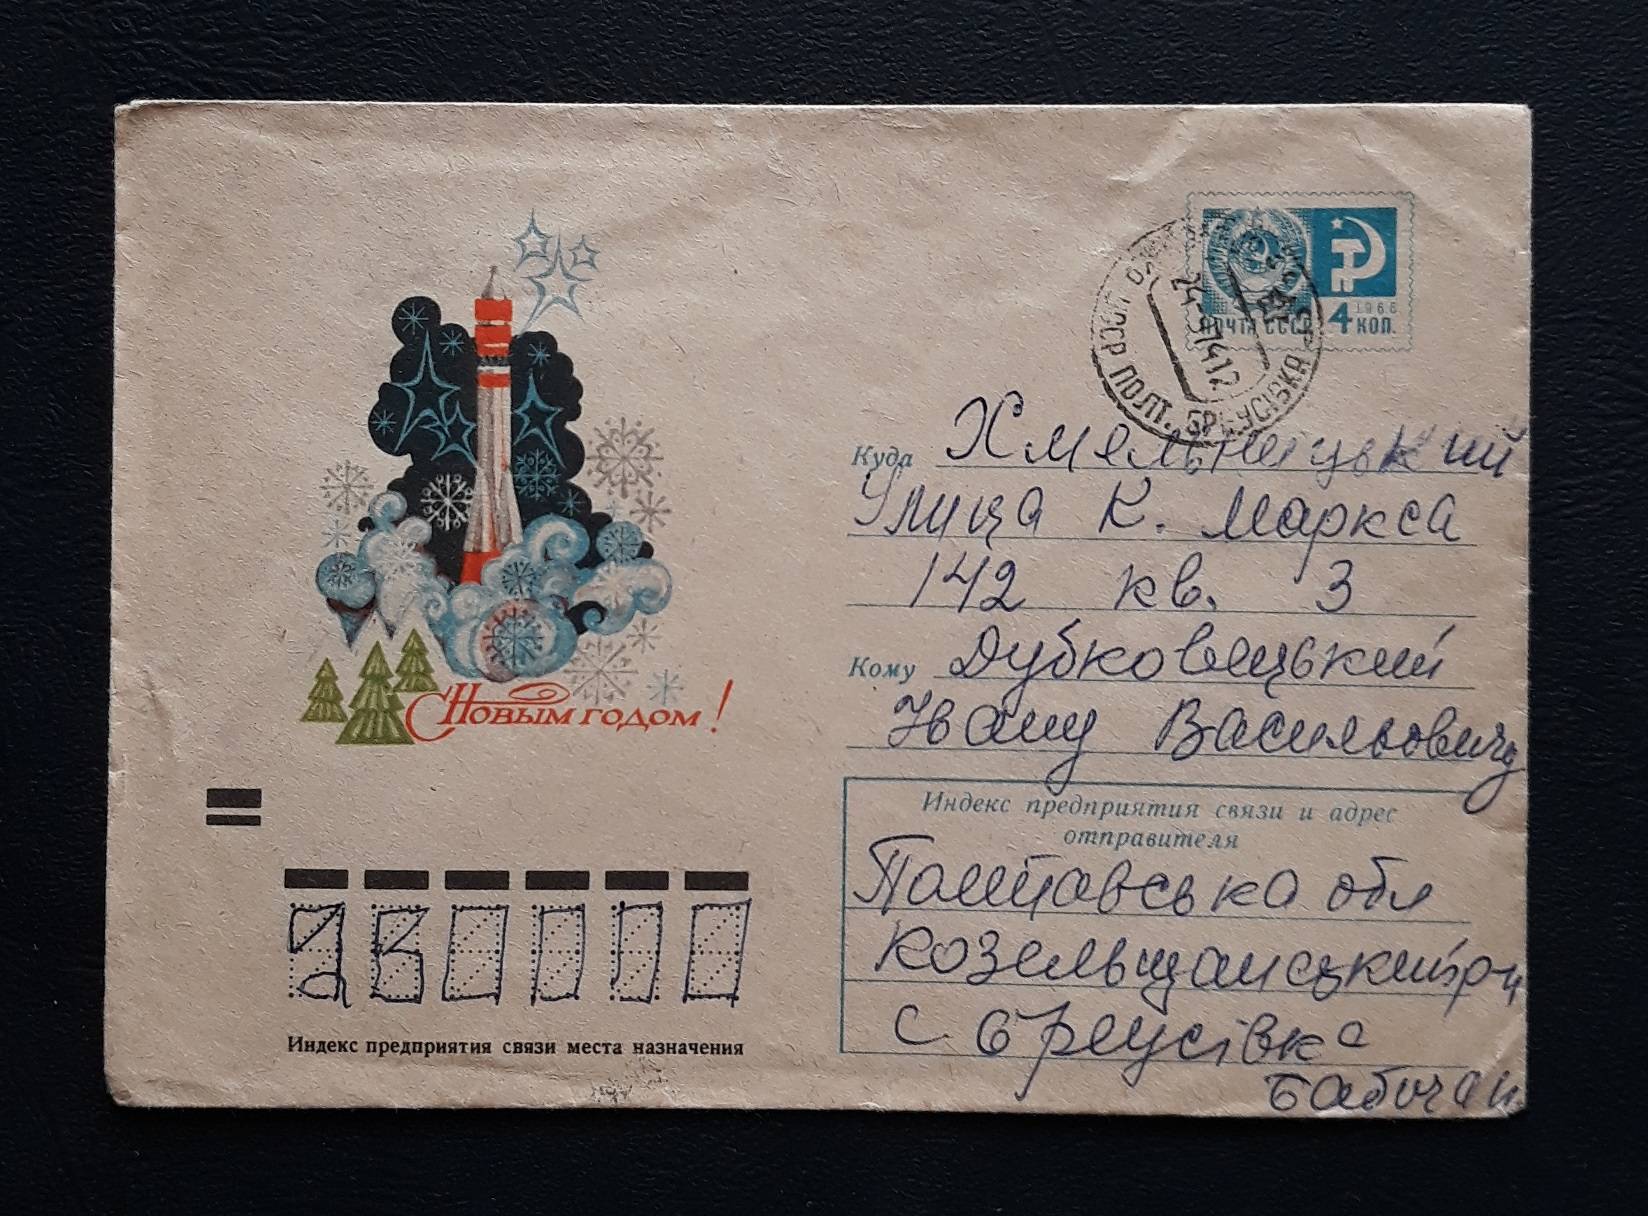 ПОЧТА СССР
1966
4 КОП.
ПОЛТ. БРЕУСІВКА
С Новым годом!
Куда Хмельницький
Улица К. Маркса
142 кв. 3
Кому Дубковецький
Івану Васильовичу
Индекс предприятия связи и адрес
отправителя
Полтавська обл
Козельщанський р-н
с Бреусівка
Индекс предприятия связи места назначения